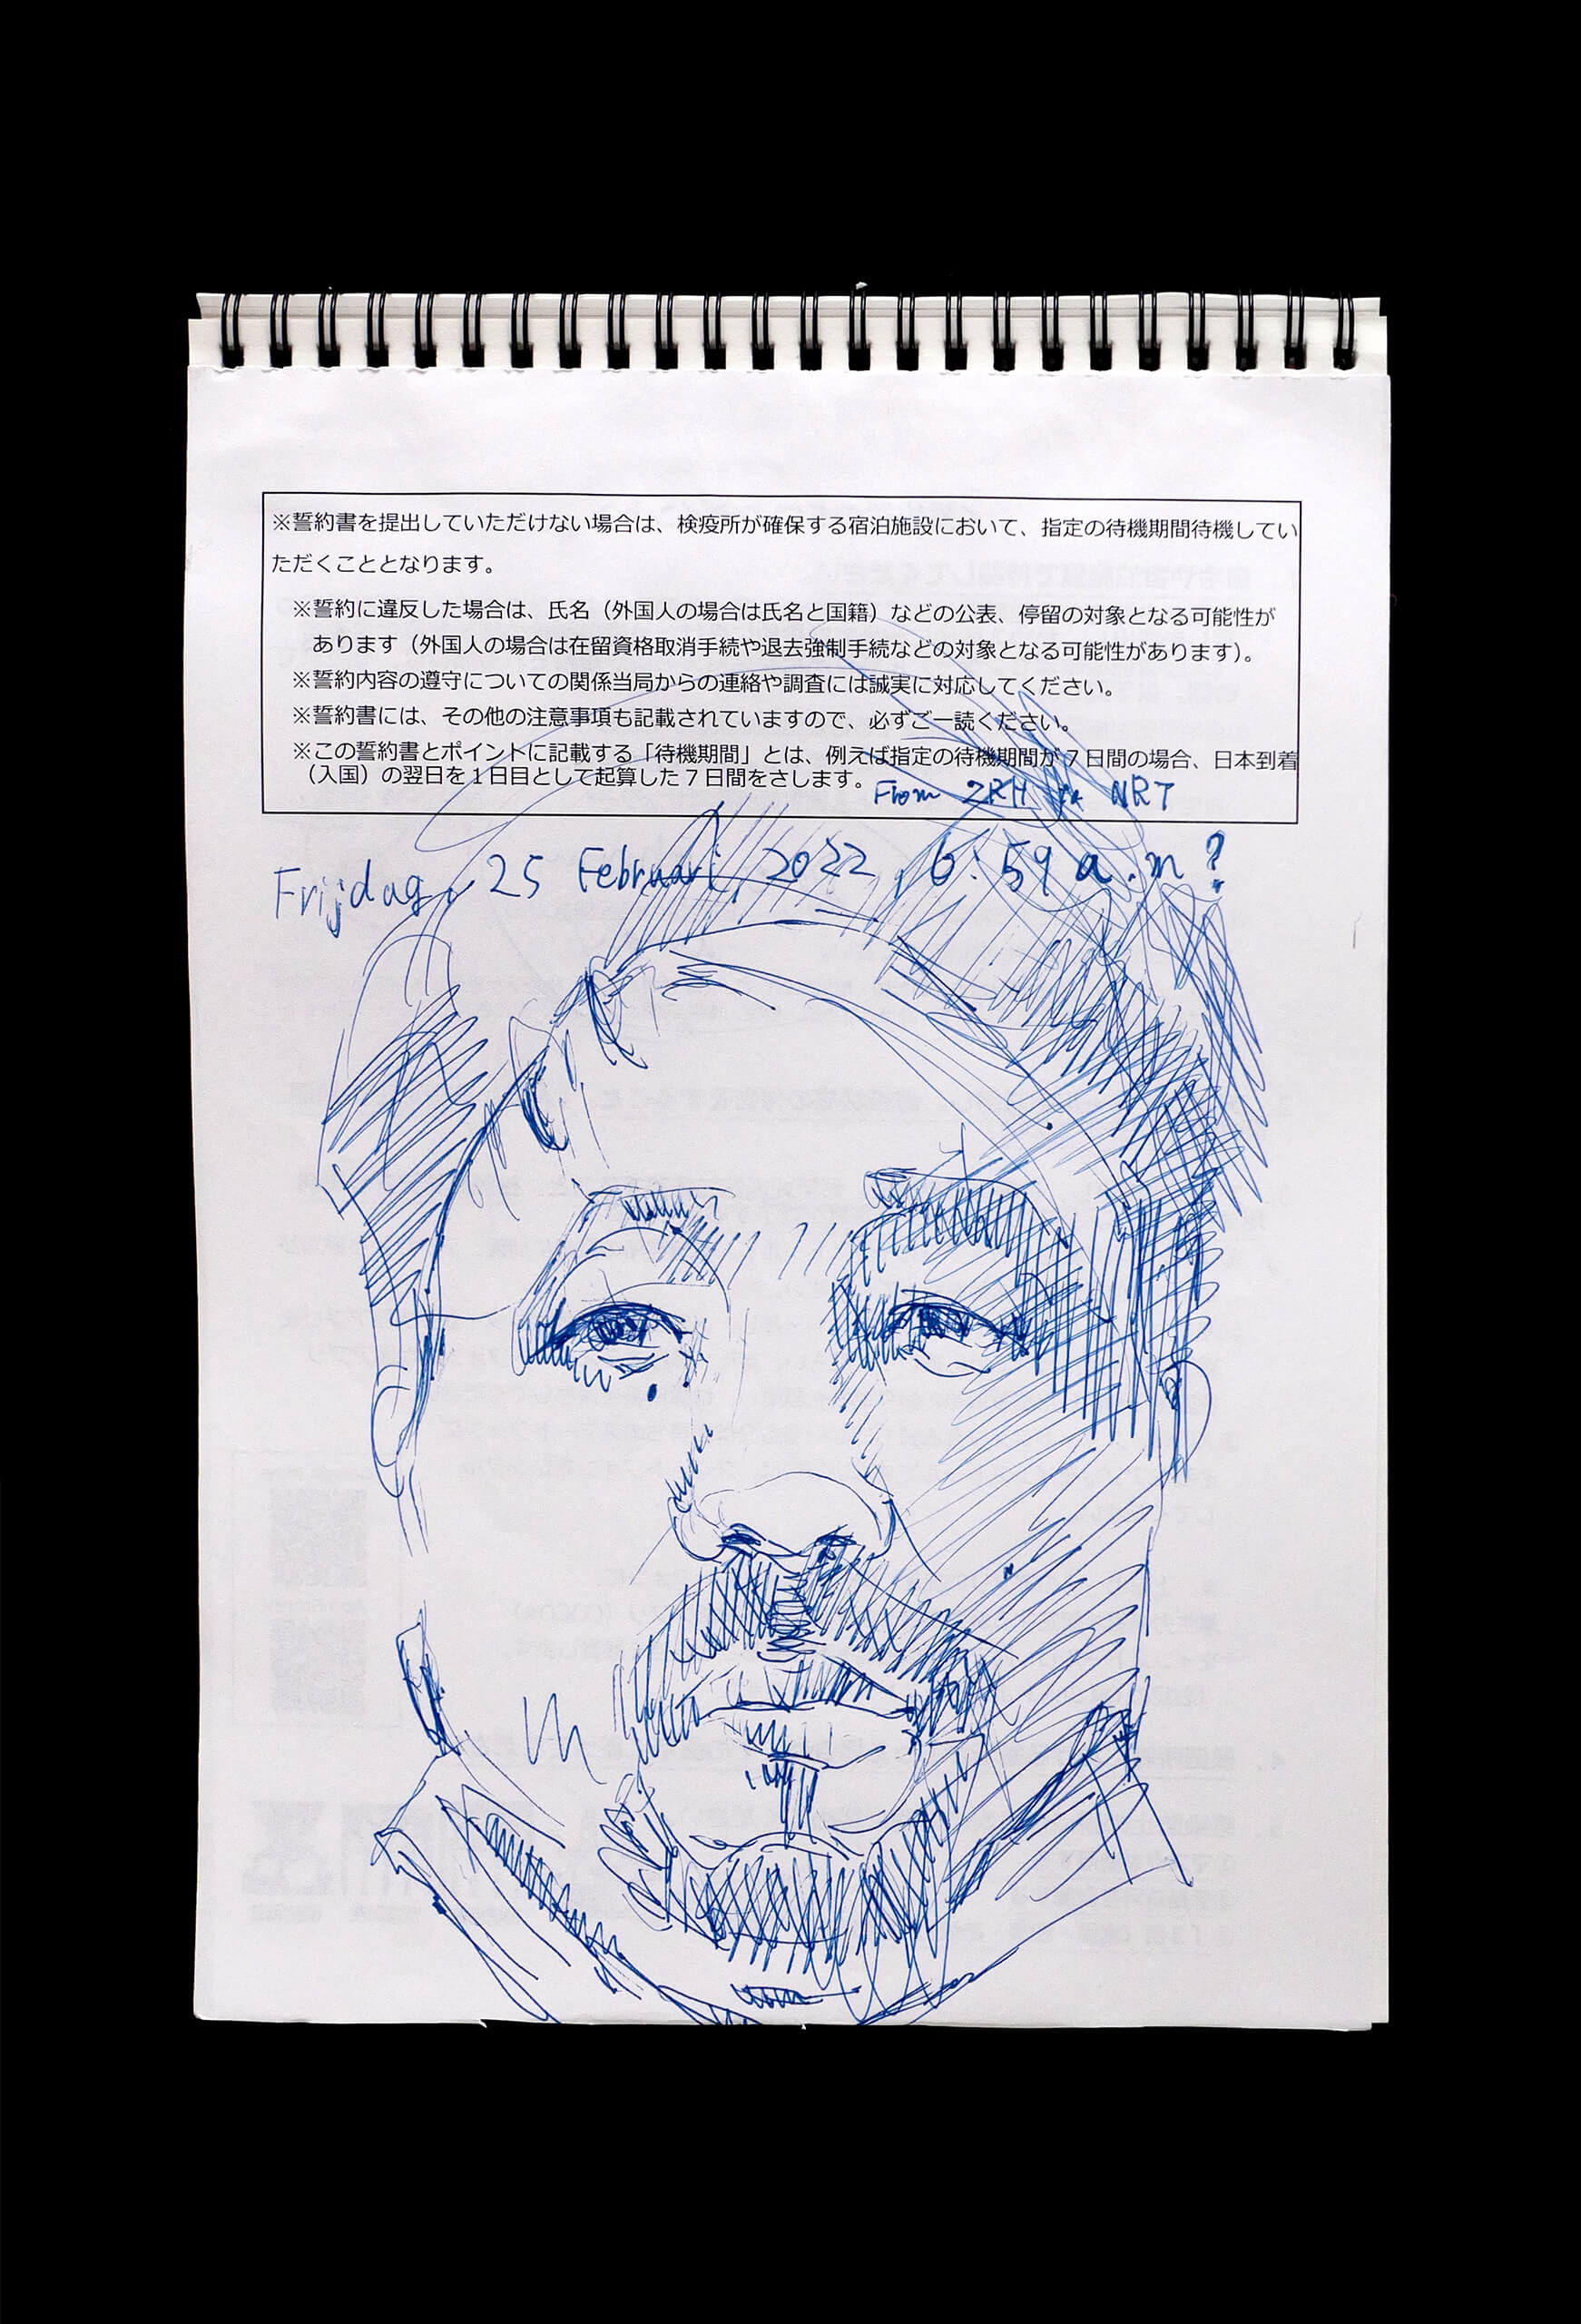 ※誓約書を提出していただけない場合は、検疫所が確保する宿泊施設において、指定の待機期間待機してい
ただくこととなります。
※誓約に違反した場合は、氏名（外国人の場合は氏名と国籍）などの公表、停留の対象となる可能性が
あります（外国人の場合は在留資格取消手続や退去強制手続などの対象となる可能性があります）。
※誓約内容の遵守についての関係当局からの連絡や調査には誠実に対応してください。
※誓約書には、その他の注意事項も記載されていますので、必ずご一読ください。
※この誓約書とポイントに記載する「待機期間」とは、例えば指定の待機期間が７日間の場合、日本到着
（入国）の翌日を１日目として起算した７日間をさします。
From ZRH NRT
Frijdag, 25 Februari, 2022, 6:59 a.m?